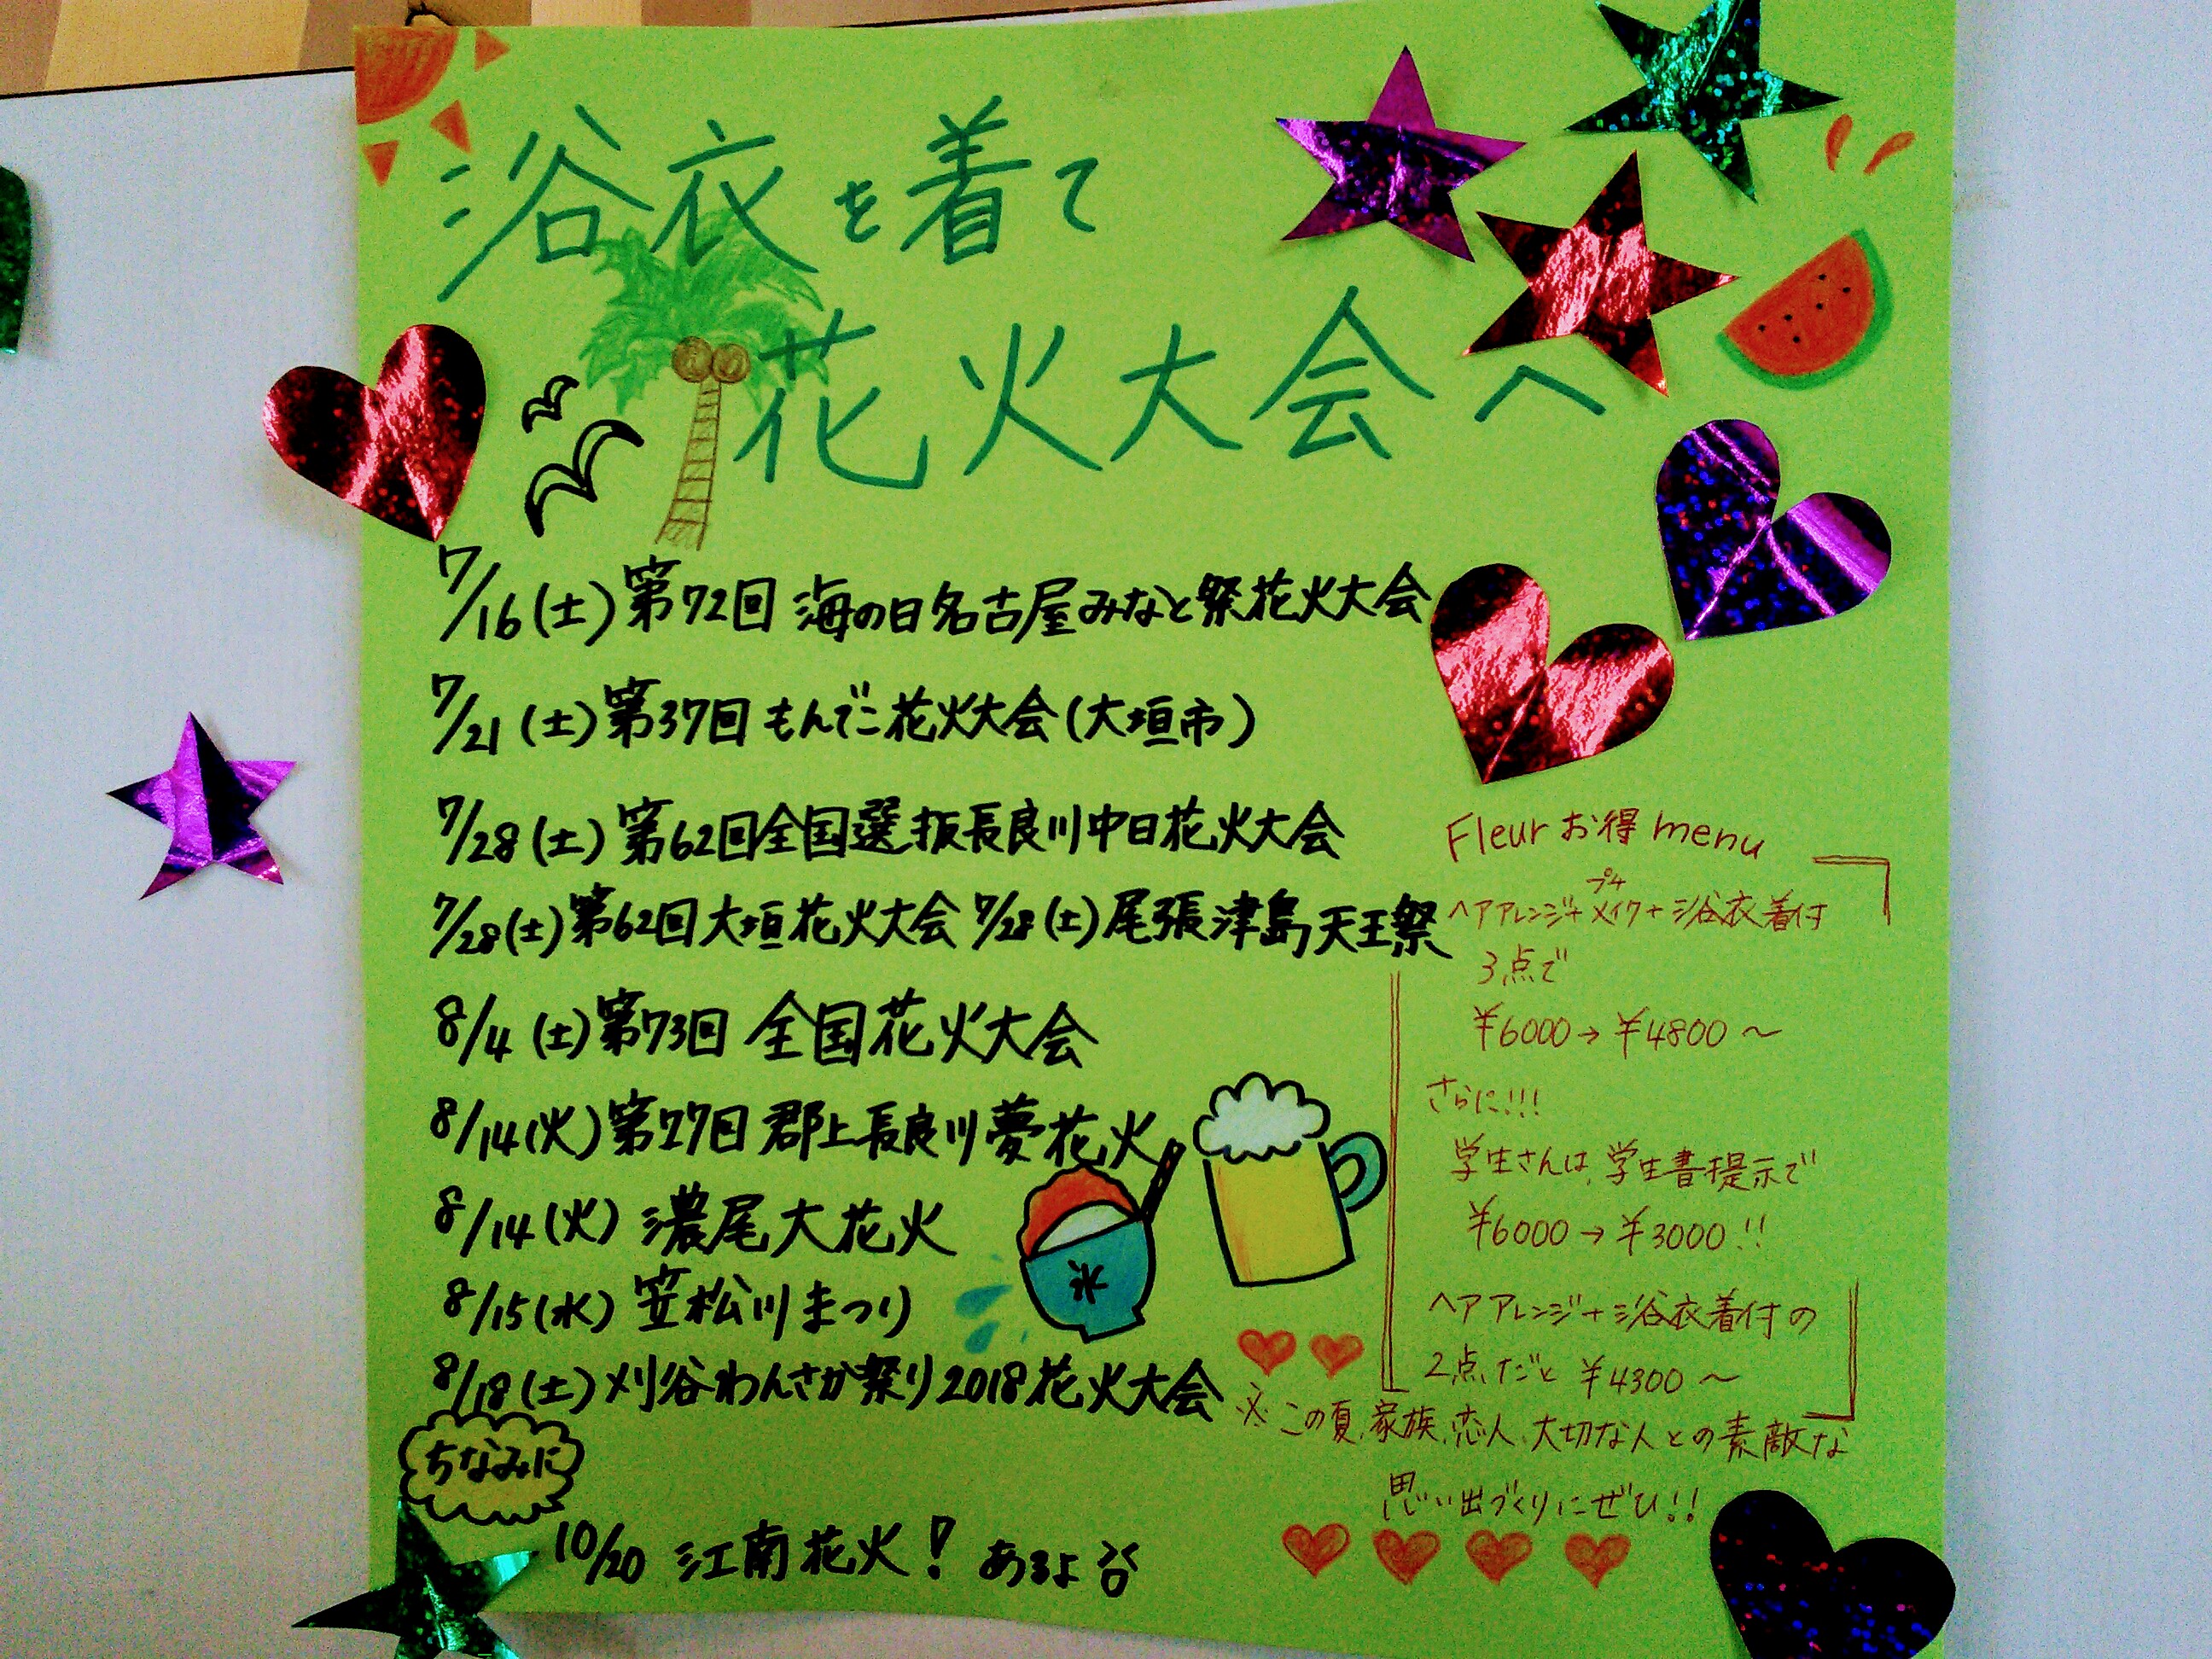 浴衣を着て
花火大会へ
7/16(土)第72回 海の日名古屋みなと祭花火大会
7/21(土)第37回 もんでこ花火大会(大垣市)
7/28(土)第62回全国選抜長良川中日花火大会
7/28(土)第62回大垣花火大会 7/28(土)尾張津島天王祭
8/4(土)第73回 全国花火大会
8/14(火)第27回 郡上長良川夢花火
8/14(火) 濃尾大花火
8/15(水) 笠松川まつり
8/18(土)刈谷わんさか祭り2018花火大会
ちなみに
10/20 江南花火! あるよ
氷
Fleurお得menu
プチ
ヘアアレンジ+メイク+浴衣着付
3点で
¥6000→¥4800~
さらに!!!
学生さんは、学生書提示で
¥6000→¥3000!!
ヘアアレンジ+浴衣着付の
2点だと ¥4300~
※この夏、家族、恋人、大切な人との素敵な
思い出づくりにぜひ!!